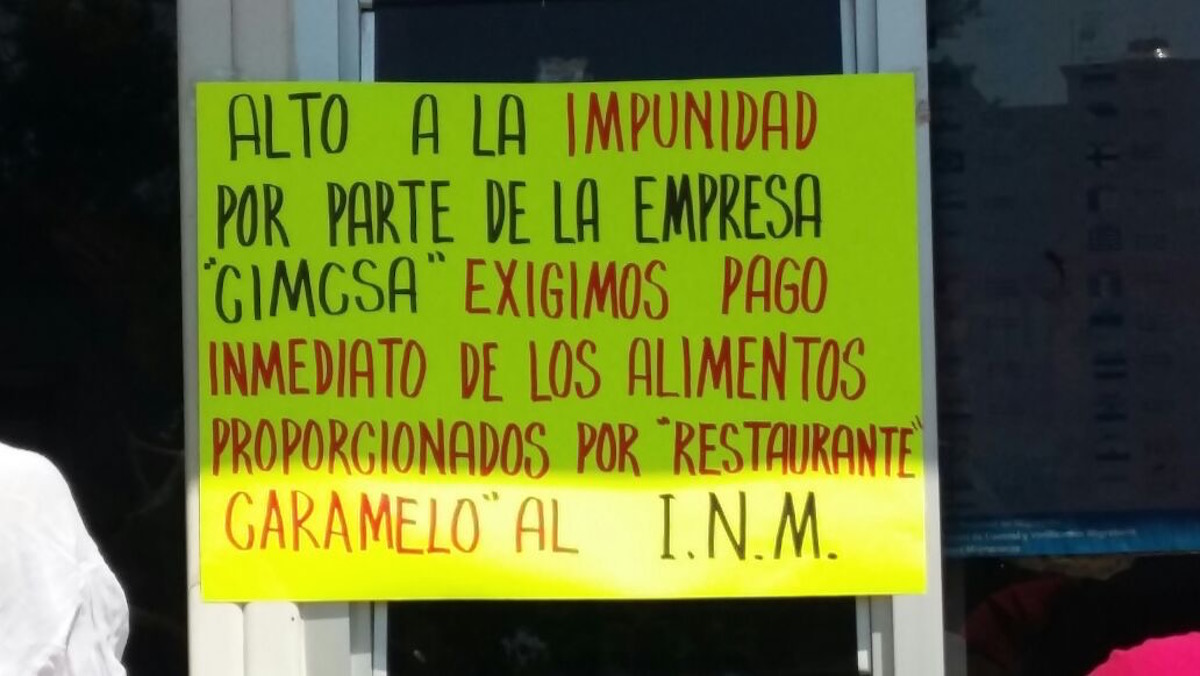 ALTO A LA IMPUNIDAD
POR PARTE DE LA EMPRESA
"CIMCSA" EXIGIMOS PAGO
INMEDIATO DE LOS ALIMENTOS
PROPORCIONADOS POR "RESTAURANTE
CARAMELO" AL I.N.M.